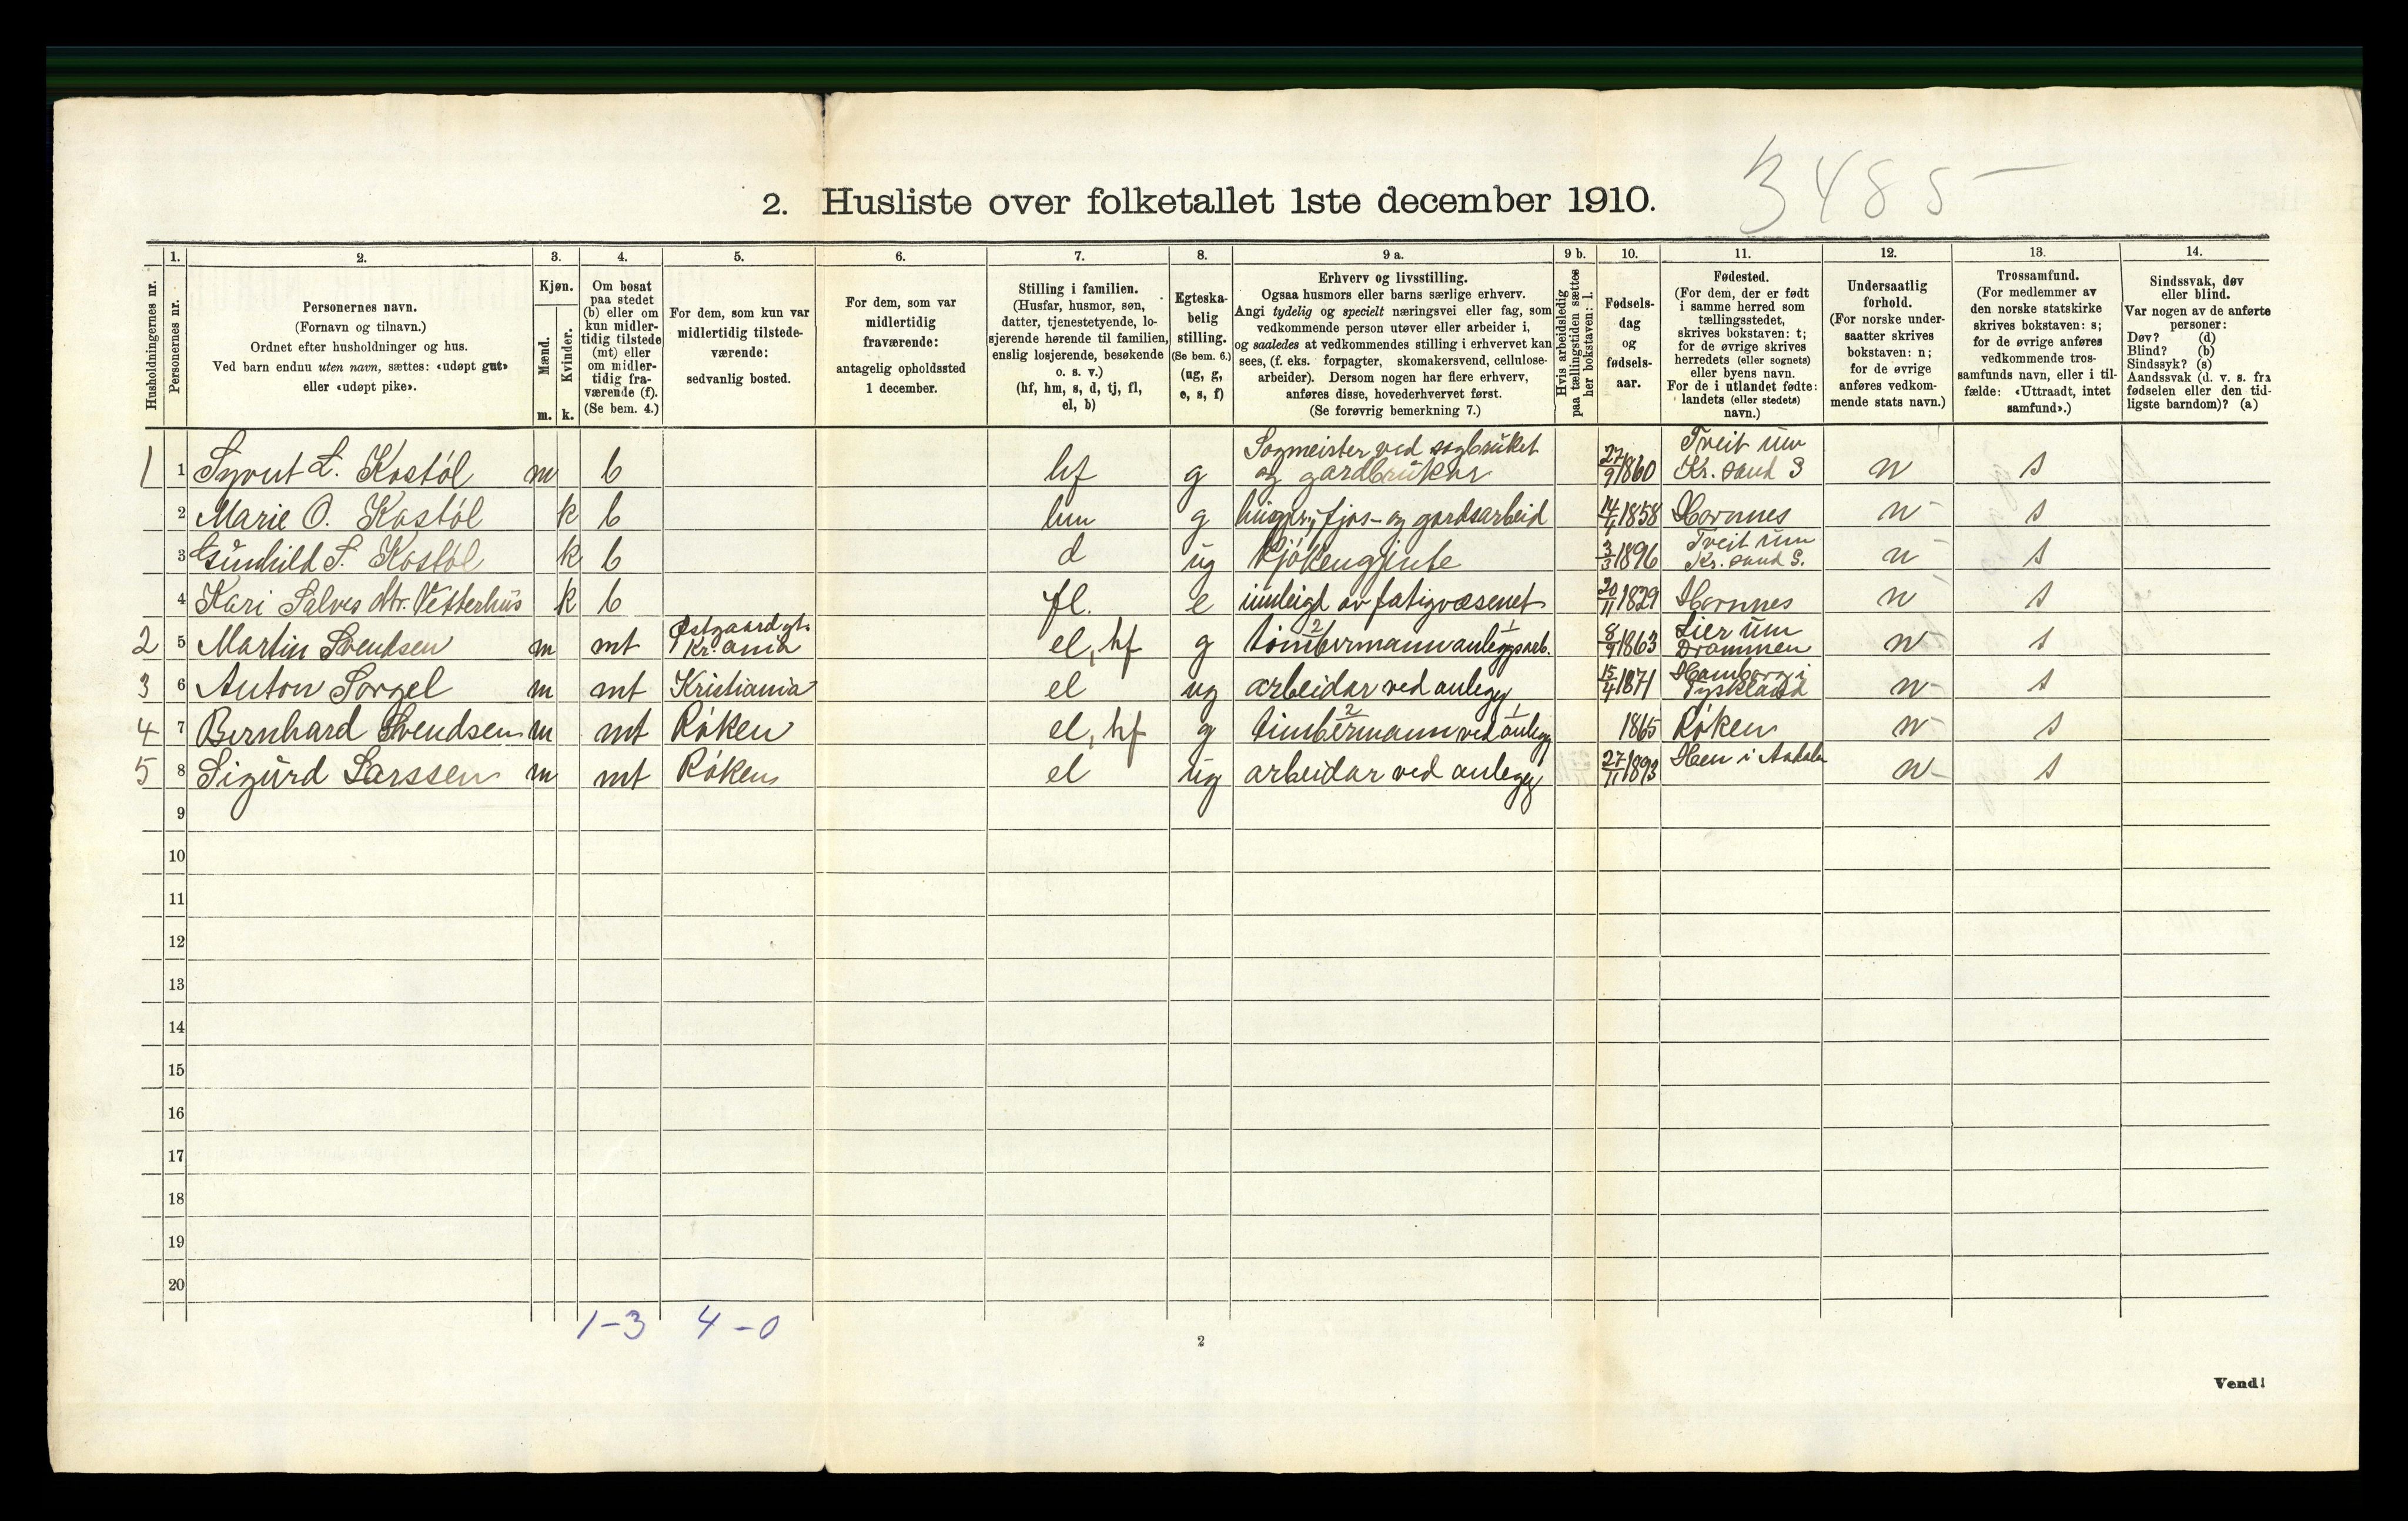 3485
2. Husliste over folketallet 1ste december 1910.
Husholdningernes nr.
1.
Personernes nr.
2.
Personernes navn.
(Fornavn og tilnavn.)
Ordnet efter husholdninger og hus.
Ved barn endnu uten navn, sættes: «udøpt gut»
eller «udøpt pike».
3.
Kjøn.
Mænd.
Kvinder.
m. k.
4.
Om bosat
paa stedet
(b) eller om
kun midler-
tidig tilstede
(mt) eller
om midler-
tidig fra-
værende (f).
(Se bem. 4.)
5.
For dem, som kun var
midlertidig tilstede-
værende:
sedvanlig bosted.
6.
For dem, som var
midlertidig
fraværende:
antagelig opholdssted
1 december.
7.
Stilling i familien.
(Husfar, husmor, søn,
datter, tjenestetyende, lo-
sjerende hørende til familien,
enslig losjerende, besøkende
o. s. v.)
(hf, hm, s, d, tj, fl,
el, b)
8.
Egteska-
belig
stilling.
(Se bem. 6.)
(ug, g,
e, s, f)
9 a.
Erhverv og livsstilling.
Ogsaa husmors eller barns særlige erhverv.
Angi tydelig og specielt næringsvei eller fag, som
vedkommende person utøver eller arbeider i,
og saaledes at vedkommendes stilling i erhvervet kan
sees, (f. eks. forpagter, skomakersvend, cellulose-
arbeider). Dersom nogen har flere erhverv,
anføres disse, hovederhvervet først.
(Se forøvrig bemerkning 7.)
9 b.
Hvis arbeidsledig
paa tællingstiden sættes
her bokstaven: l.
10.
Fødsels-
dag
og
fødsels-
aar.
11.
Fødested.
(For dem, der er født
i samme herred som
tællingsstedet,
skrives bokstaven: t;
for de øvrige skrives
herredets (eller sognets)
eller byens navn.
For de i utlandet fødte:
landets (eller stedets)
navn.)
12.
Undersaatlig
forhold.
(For norske under-
saatter skrives
bokstaven: n;
for de øvrige
anføres vedkom-
mende stats navn.)
13.
Trossamfund.
(For medlemmer av
den norske statskirke
skrives bokstaven: s;
for de øvrige anføres
vedkommende tros-
samfunds navn, eller i til-
fælde: «Uttraadt, intet
samfund».)
14.
Sindssvak, døv
eller blind.
Var nogen av de anførte
personer:
Døv? (d)
Blind? (b)
Sindssyk? (s)
Aandssvak (d. v. s. fra
fødselen eller den tid-
ligste barndom)? (a)
1 1 Syvert L. Kostøl m b hf g Sogmeister ved sogbruket og gardbrukar 27/9 1860 Tveit um Kr. sand S n s
2 Marie O. Kostøl k b hm g fjos- og gardsarbeid 14/1 1858 Hornnes n s
3 Gunhild S. Kostøl k b d ug kjøkengjente 3/3 1896 Tveit um Kr. sand S. n s
4 Kari Salves dtr. Vetterhus k b fl. e umleigd av fatigvæsenet 20/11 1829 Hornnes n s
2 5 Martin Svendsen m mt Østgaard gt. Kr.ania el, hf g 2 1 tömbermann anleggsarb. 8/9 1863 Lier um Drammen n s
3 6 Anton Sorgel m mt Kristiania el ug arbeidar ved anlegg 15/4 1871 Hamborg i Tyskland n s
4 7 Bernhard Svendsen m mt Røken el, hf g 2 1 timbermann ved anlegg 1865 Røken n s
5 8 Sigurd Larssen m mt Røken el ug arbeidar ved anlegg 27/11 1893 Hen i n s
9
10
11
12
13
14
15
16
17
18
19
20
1-3 4-0
2
Vend!